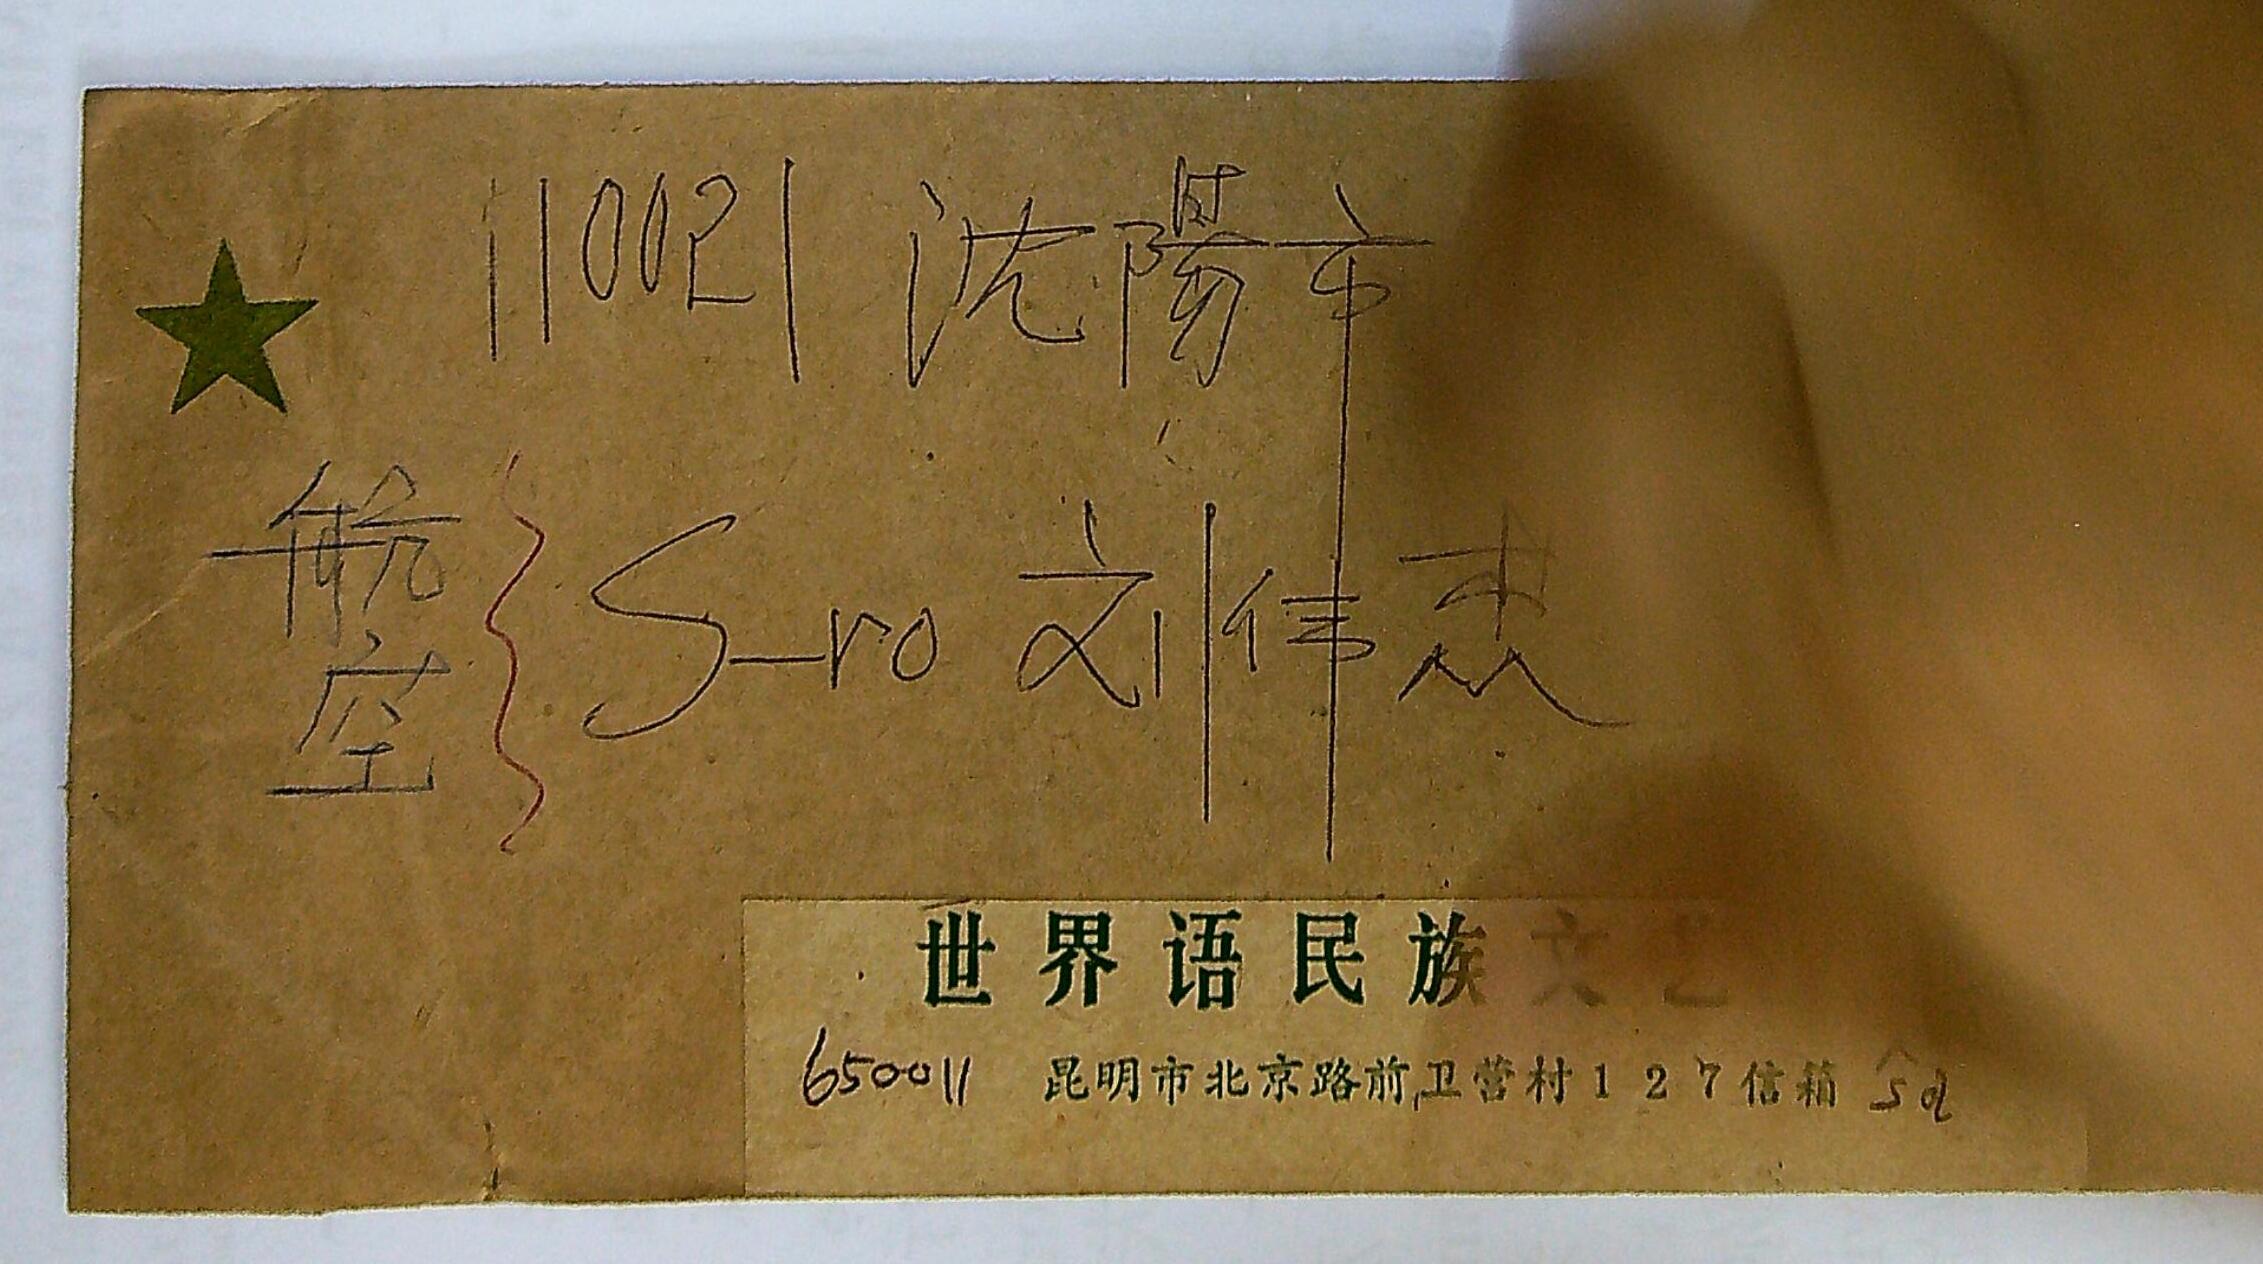 110021 沈陽市
航空
S-ro 刘伟杰
世界语民族文艺
650011 昆明市北京路前卫营村127信箱